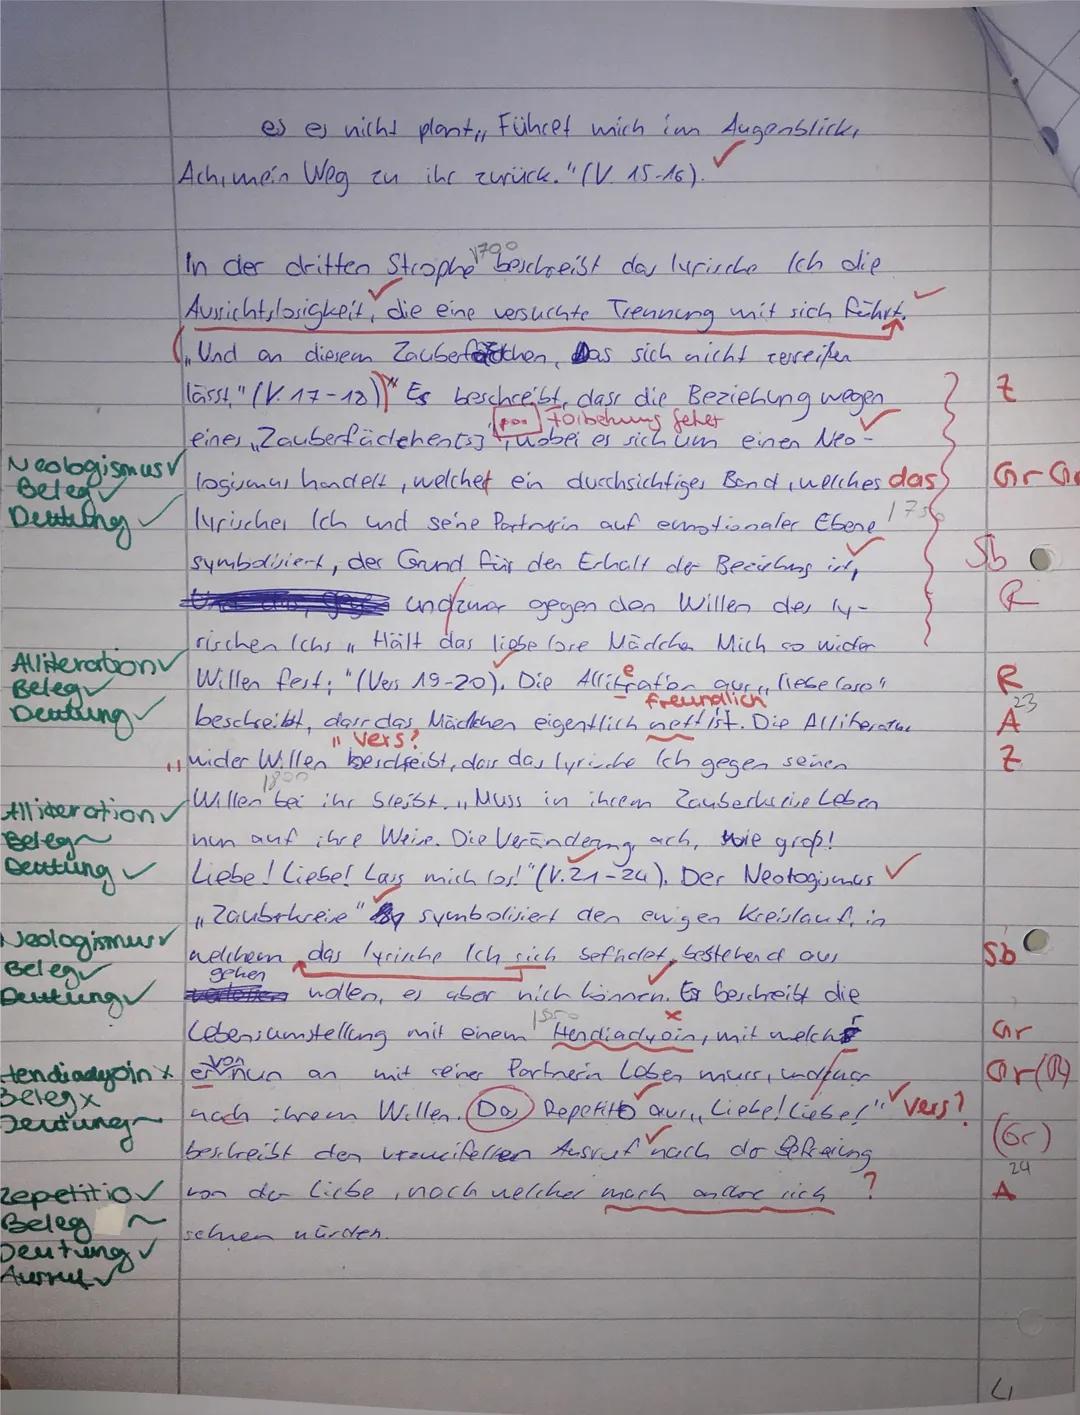 es es nicht plant „ Führet mich im Augenblick,
Ach, mein Weg zu ihr zurück." (V. 15-16).
1700
In der dritten Strophe beschreibt das lyrische Ich die
Aussichtslosigkeit, die eine versuchte Trennung mit sich führt.
„Und an diesem Zauberfädchen, Das sich nicht zerreißen
lässt," (V. 17-18) Es beschreibt, dass die Beziehung wegen
Z
eines „Zauberfädchen[s]", wobei es sich um einen Neo-
Neologismus ✓
Beleg ✓
Deutung ✓
logismus handelt, welcher ein durchsichtiges Band, welches das
Gr Gr
1750
lyrisches Ich und seine Partnerin auf emotionaler Ebene
symbolisiert, der Grund für den Erhalt der Beziehung ist,
Sb
und zwar gegen den Willen des ly-
R
rischen Ichs „ Hält das liebe lose Mädchen Mich so wider
Alliteration ✓
Beleg ✓
Deutung ✓
Willen fest; " (Vers 19-20). Die Alliteration aus „liebe lose"
R
e
freundlich
beschreibt, dass das Mädchen eigentlich nett ist. Die Alliteration
A
23
Vers?
„ wider Willen beschreibt, dass das lyrische Ich gegen seinen
Z
1800
Willen bei ihr bleibt. „Muss in ihrem Zauberkreise Leben
Alliteration ✓
Beleg ~
Deutung ✓
nun auf ihre Weise. Die Veränderung, ach, wie groß!
Liebe! Liebe! Lass mich los!" (V. 21-24). Der Neologismus
„Zauberkreise" symbolisiert den ewigen Kreislauf, in
Neologismus ✓
Beleg ✓
Deutung ✓
welchem das lyrische Ich sich befindet, bestehend aus
Sb
gehen
wollen, es aber nich können. Es beschreibt die
1850
Lebensumstellung mit einem Hendiadyoin, mit welcher
Gr
Hendiadyoin x
Beleg x
Deutung ~
er von nun an mit seiner Partnerin Leben muss, und zwar
Gr (R)
nach ihrem Willen. Das Repetitio aus „ Liebe! Liebe!" Vers?
(Gr)
beschreibt den verzweifelten Ausruf nach der Befreiung
24
Repetitio ✓
Beleg ~
Deutung ✓
Ausruf ✓
von der Liebe, nach welcher mach andre sich ?
A
sehnen würden.
4